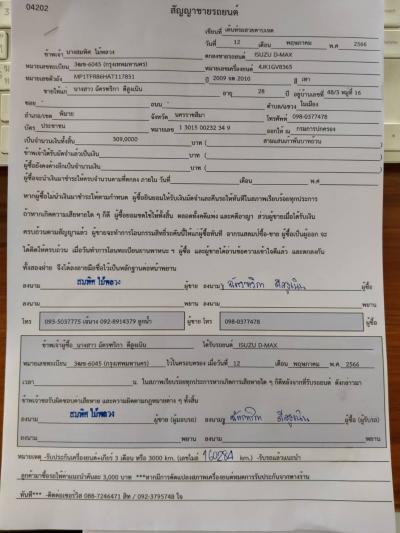 04202
สัญญาขายรถยนต์
เขียนที่ เต็นท์รถเอวตาบเจต
วันที่ 12 เดือน พฤษภาคม พ.ศ 2566
ข้าพเจ้า นางสมทิศ ไม้พลวง ตกลงขายรถยนต์ ISUZU D-MAX
หมายเลขทะเบียน 3ฒฮ-6045 (กรุงเทพมหานคร) หมายเลขเครื่องยนต์ 4JK1GV8365
หมายเลขตัวถัง MP1TFR86HAT117831 ปี 2009 จด 2010 สี เทา
ขายให้แก่ นางสาว ฉัตรทริกา ดีสูงเนิน อายุ 28 ปี อยู่บ้านเลขที่ 48/3 หมู่ที่ 16
ซอย - ถนน - ตำบล/แขวง ในเมือง
อำเภอ/เขต พิมาย จังหวัด นครราชสีมา โทรศัพท์ 098-0377478
บัตร ประชาชน หมายเลข 1 3015 00232 34 9 ออกให้ ณ กรมการปกครอง
เป็นจำนวนเงินทั้งสิ้น 309,0000 บาท ( สามแสนเก้าพันบาทถ้วน )
ข้าพเจ้าได้รับมัดจำแล้วเป็นเงิน บาท ( )
ผู้ซื้อยังคงค้างอีกเป็นจำนวนเงิน บาท ( )
ผู้ซื้อจะนำเงินมาชำระให้ครบจำนวนตามที่ตกลง ภายใน วันที่ เดือน พ.ศ
หากผู้ซื้อไม่นำเงินมาชำระให้ตามกำหนด ผู้ซื้อยินยอมให้ริบเงินมัดจำและคืนรถให้ทันทีในสภาพเรียบร้อยทุกประการ
ถ้าหากเกิดความเสียหายใด ๆ ก็ดี ผู้ซื้อยอมชดใช้ให้ทั้งสิ้น ตลอดทั้งคดีแพ่ง และคดีอาญา ส่วนผู้ขายเมื่อได้รับเงิน
ครบถ้วนตามสัญญาแล้ว ผู้ขายจะทำการโอนกรรมสิทธิ์ระคันนี้ให้แก่ผู้ซื้อทันที จากแสตมป์ซื้อ-ขาย ผู้ซื้อเป็นผู้ออก จะ
ได้คิดให้ครบถ้วน เมื่อวันทำการโอนทะเบียนยานพาหนะ ฯ ผู้ซื้อ และผู้ขายได้อ่านข้อความเข้าใจดีแล้ว และตกลงกัน
ทั้งสองฝ่าย จึงได้ลงลายมือชื่อไว้เป็นหลักฐานต่อหน้าพยาน
ลงนาม สมทิศ ไม้พลวง ผู้ขาย ลงนาม ฉัตรทริกา ดีสูงเนิน ผู้ซื้อ
ลงนาม พยาน ลงนาม พยาน
โทร 093-5037775 092-8914379 ลูกน้ำ ผู้ขาย โทร 098-0377478 ผู้ซื้อ
ข้าพเจ้าผู้ซื้อ นางสาว ฉัตรทริกา ดีสูงเนิน ได้รับรถยนต์ ISUZU D-MAX
หมายเลขทะเบียน 3ฒฮ-6045 (กรุงเทพมหานคร) ไว้ในครอบครอง เมื่อวันที่ 12 เดือน พฤษภาคม พ.ศ 2566
เวลา น. ในสภาพเรียบร้อยทุกประการหากเกิดการเสียหายใด ๆ ก็ดีหลังจากที่รับรถยนต์ ดังกล่าวมา
ข้าพเจ้าขอรับผิดชอบค่าเสียหาย และความผิดตามกฎหมายต่าง ๆ ทั้งสิ้น
ลงนาม สมทิศ ไม้พลวง ผู้ขาย (ผู้มอบรถ) ลงนาม ฉัตรทริกา ดีสูงเนิน ผู้ซื้อ (ผู้รับรถ)
ลงนาม พยาน ลงนาม พยาน
หมายเหตุ -รับประกันเครื่องยนต์+เกียร์ 3 เดือน หรือ 3000 km. (เลขไมล์ 160284 km.) -รับรถแล้วแนะนำ
ลูกค้ามาซื้อรถให้ค่าแนะนำคันละ 3,000 บาท ***หากมีการดัดแปลงสภาพเครื่องยนต์หมดการรับประกันจากทางร้าน
ทันที*** -ติดต่อเซอร์วิส 088-7246471 สิท / 092-3795748 ใจ